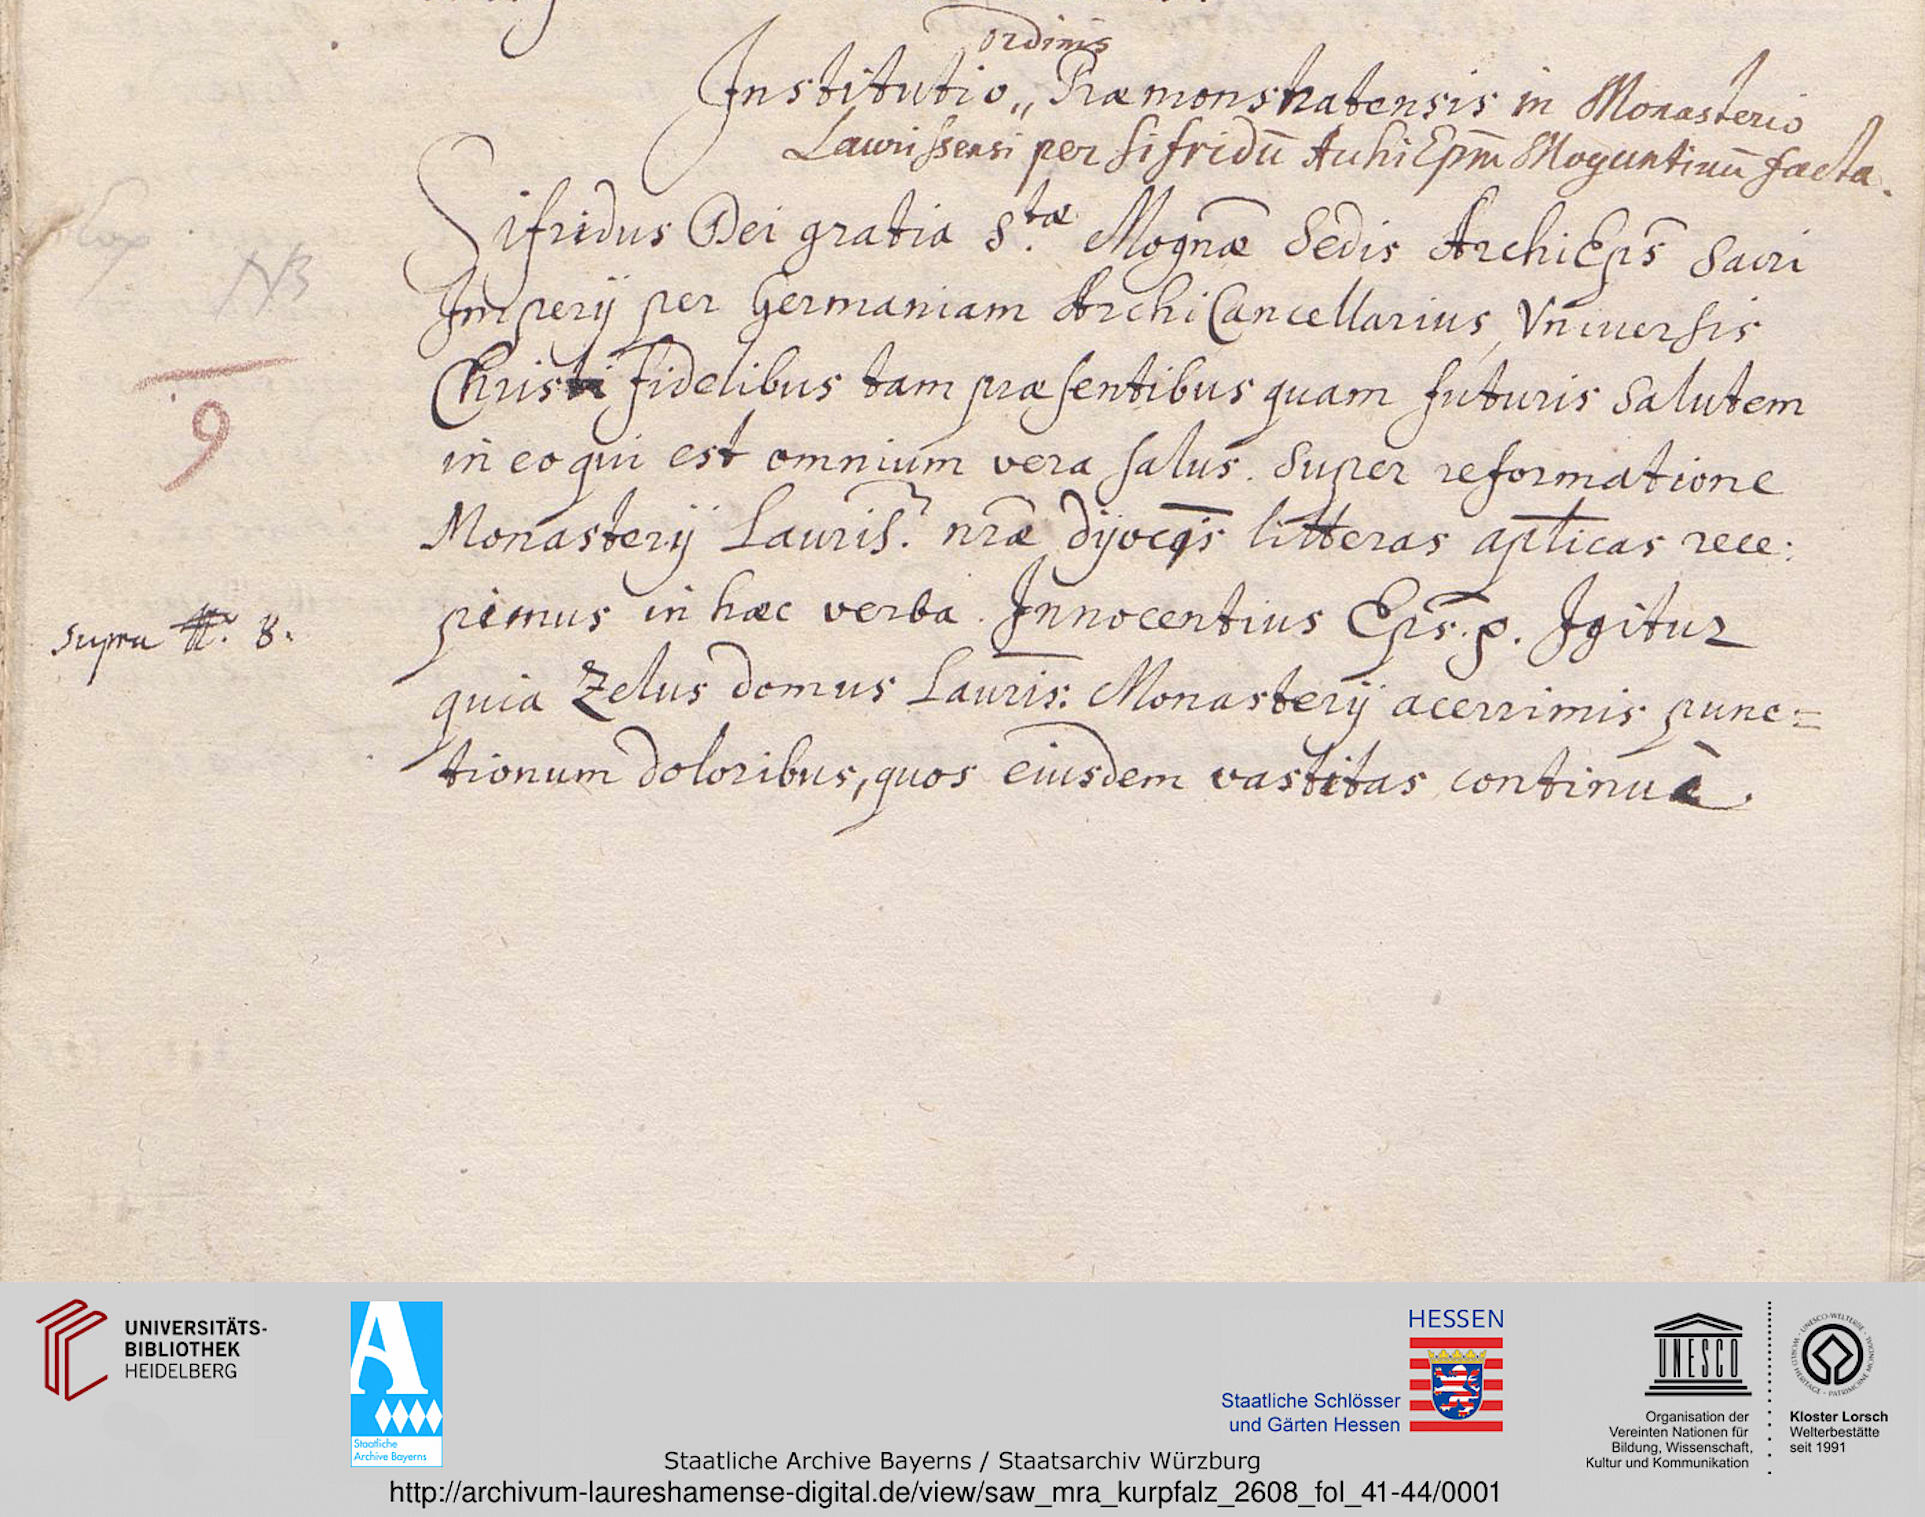 ordinis
Institutio„ Præmonstratensis in Monasterio
Laurissensi per Sifridū ArchiEpm̄ Moguntinū facta.
Sifridus Dei gratia S.tæ Mognæ Sedis ArchiEps̄ Sacri
Imperij per Germaniam ArchiCancellarius, Vniuersis
Christi fidelibus tam præsentibus quam futuris salutem
in eo qui est omnium vera salus. Super reformatione
NB
9
Monasterij Lauris. nræ dyoces̄ litteras aplicas rece:
pimus in hæc verba. Innocentius Eps. p. Igitur
supra 8.
quia Zelus domus Lauris: Monasterij acerrimis punc=
tionum doloribus, quos eiusdem vastitas continuà.
UNIVERSITÄTS-
BIBLIOTHEK
HEIDELBERG
A
Staatliche
Archive Bayerns
HESSEN
Staatliche Schlösser
und Gärten Hessen
UNESCO
Organisation der
Vereinten Nationen für
Bildung, Wissenschaft,
Kultur und Kommunikation
Kloster Lorsch
Welterbestätte
seit 1991
Staatliche Archive Bayerns / Staatsarchiv Würzburg
http://archivum-laureshamense-digital.de/view/saw_mra_kurpfalz_2608_fol_41-44/0001